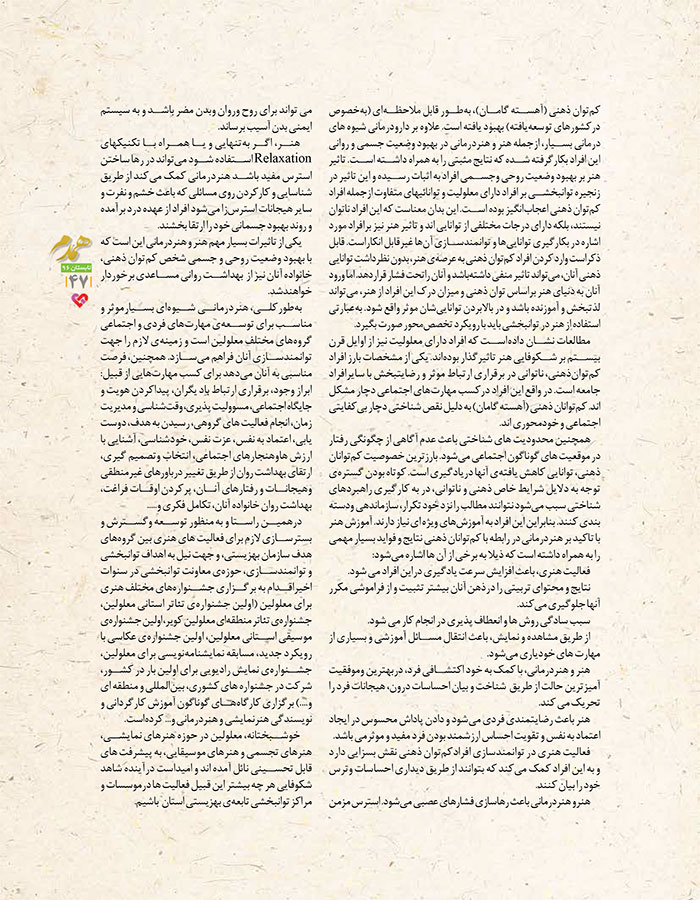 کم‌توان ذهنی (آهسته گامان)، به‌طور قابل ملاحظه‌ای (به‌خصوص
در کشورهای توسعه‌یافته) بهبود یافته است. علاوه بر دارودرمانی شیوه های
درمانی بسیار، از جمله هنر و هنردرمانی در بهبود وضعیت جسمی و روانی
این افراد بکار گرفته شده که نتایج مثبتی را به همراه داشته است. تاثیر
هنر بر بهبود وضعیت روحی وجسمی افراد به اثبات رسیده و این تاثیر در
زنجیره توانبخشی بر افراد دارای معلولیت و توانائیهای متفاوت از جمله افراد
کم‌توان ذهنی اعجاب‌انگیز بوده است. این بدان معناست که این افراد ناتوان
نیستند، بلکه دارای درجات مختلفی از توانایی اند و تاثیر هنر نیز بر افراد مورد
اشاره در بکارگیری توانایی‌ها و توانمندسازی آن‌ها غیرقابل انکار است. قابل
ذکراست وارد کردن افراد کم‌توان ذهنی به عرصه‌ی هنر، بدون نظرداشت توانایی
ذهنی آنان، می‌تواند تاثیر منفی داشته‌باشد و آنان را تحت فشار قرار دهد. اما ورود
آنان به دنیای هنر براساس توان ذهنی و میزان درک این افراد از هنر، می‌تواند
لذتبخش و آموزنده باشد و در بالابردن توانایی‌شان موثر واقع شود. به‌عبارتی
استفاده از هنر در توانبخشی باید با رویکرد تخصص‌محور صورت بگیرد.
مطالعات نشان داده‌است که افراد دارای معلولیت نیز از اوایل قرن
بیستم بر شکوفایی هنر تاثیرگذار بوده‌اند. یکی از مشخصات بارز افراد
کم‌توان ذهنی، ناتوانی در برقراری ارتباط موثر و رضایتبخش با سایرافراد
جامعه است. در واقع این افراد در کسب مهارت‌های اجتماعی دچار مشکل
اند. کم‌توانان ذهنی (آهسته گامان) به دلیل نقص شناختی دچار بی‌کفایتی
اجتماعی و خودمحوری اند.
همچنین محدودیت های شناختی باعث عدم آگاهی از چگونگی رفتار
در موقعیت های گوناگون اجتماعی می‌شود. بارزترین خصوصیت کم‌توانان
ذهنی، توانایی کاهش یافته‌ی آنها در یادگیری است. کوتاه بودن گستره‌ی
توجه به دلایل شرایط خاص ذهنی و ناتوانی، در به کارگیری راهبردهای
شناختی سبب می‌شود نتوانند مطالب را نزد خود تکرار، سازماندهی و دسته
بندی کنند. بنابراین این افراد به آموزش‌های ویژه ای نیاز دارند. آموزش هنر
با تاکید بر هنردرمانی در رابطه با کم‌توانان ذهنی نتایج و فواید بسیار مهمی
را به همراه داشته است که ذیلا به برخی از آن ها اشاره می‌شود:
فعالیت هنری، باعث افزایش سرعت یادگیری در این افراد می شود.
نتایج و محتوای تربیتی را در ذهن آنان بیشتر تثبیت و از فراموشی مکرر
آنها جلوگیری می‌کند.
سبب سادگی روش ها و انعطاف پذیری در انجام کار می شود.
از طریق مشاهده و نمایش، باعث انتقال مسائل آموزشی و بسیاری از
مهارت های خودیاری می‌شود.
هنر و هنردرمانی، با کمک به خود اکتشافی فرد، در بهترین و موفقیت
آمیزترین حالت از طریق شناخت و بیان احساسات درون، هیجانات فرد را
تحریک می کند.
هنر باعث رضایتمندی فردی می‌شود و دادن پاداش محسوس در ایجاد
اعتماد به نفس و تقویت احساس ارزشمند بودن فرد مفید و موثر می باشد.
فعالیت هنری در توانمندسازی افراد کم‌توان ذهنی نقش بسزایی دارد
و به این افراد کمک می کند که بتوانند از طریق دیداری احساسات و ترس
خود را بیان کنند.
هنر و هنردرمانی باعث رهاسازی فشارهای عصبی می‌شود. استرس مزمن
می تواند برای روح وروان وبدن مضر باشد و به سیستم
ایمنی بدن آسیب برساند.
هنر، اگر به‌تنهایی و یا همراه با تکنیکهای
Relaxation استفاده شود می‌تواند در رها ساختن
استرس مفید باشد. هنردرمانی کمک می کند از طریق
شناسایی و کار کردن روی مسائلی که باعث خشم و نفرت و
سایر هیجانات استرس‌زا می‌شود افراد از عهده درد برآمده
و روند بهبود جسمانی خود را ارتقا بخشند.
یکی از تاثیرات بسیار مهم هنر و هنردرمانی این است که
با بهبود وضعیت روحی و جسمی شخص کم‌توان ذهنی،
خانواده آنان نیز از بهداشت روانی مساعدی برخوردار
خواهندشد.
به‌طور کلی، هنردرمانی شیوه‌ای بسیار موثر و
مناسب برای توسعه‌ی مهارت‌های فردی و اجتماعی
گروه‌های مختلف معلولین است و زمینه‌ی لازم را جهت
توانمندسازی آنان فراهم می‌سازد. همچنین، فرصت
مناسبی به آنان می‌دهد برای کسب مهارت‌هایی از قبیل:
ابراز وجود، برقراری ارتباط با دیگران، پیدا کردن هویت و
جایگاه اجتماعی، مسوولیت پذیری، وقت‌شناسی و مدیریت
زمان، انجام فعالیت های گروهی، رسیدن به هدف، دوست
یابی، اعتماد به نفس، عزت نفس، خودشناسی، آشنایی با
ارزش ها و هنجارهای اجتماعی، انتخاب و تصمیم گیری،
ارتقای بهداشت روان از طریق تغییر در باورهای غیرمنطقی
وهیجانات و رفتارهای آنان، پر کردن اوقات فراغت،
بهداشت روان خانواده آنان، تکامل فکری و...
در همین راستا و به منظور توسعه و گسترش و
بسترسازی لازم برای فعالیت های هنری بین گروه‌های
هدف سازمان بهزیستی، و جهت نیل به اهداف توانبخشی
و توانمندسازی، حوزه‌ی معاونت توانبخشی در سنوات
اخیر اقدام به برگزاری جشنواره‌های مختلف هنری
برای معلولین (اولین جشنواره‌ی تئاتر استانی معلولین،
جشنواره‌ی تئاتر منطقه‌ای معلولین کویر، اولین جشنواره‌ی
موسیقی استانی معلولین، اولین جشنواره‌ی عکاسی با
رویکرد جدید، مسابقه نمایشنامه‌نویسی برای معلولین،
جشنواره‌ی نمایش رادیویی برای اولین بار در کشور،
شرکت در جشنواره های کشوری، بین‌المللی و منطقه ای
و...) برگزاری کارگاه‌های گوناگون آموزش کارگردانی و
نویسندگی هنرنمایشی و هنردرمانی و... کرده‌است.
خوشبختانه، معلولین در حوزه هنرهای نمایشی،
هنرهای تجسمی و هنرهای موسیقایی، به پیشرفت های
قابل تحسینی نائل آمده اند و امیداست در آینده شاهد
شکوفایی هر چه بیشتر این قبیل فعالیت ها در موسسات و
مراکز توانبخشی تابعه‌ی بهزیستی استان باشیم.
همدم
تابستان ۹۶
۴۷